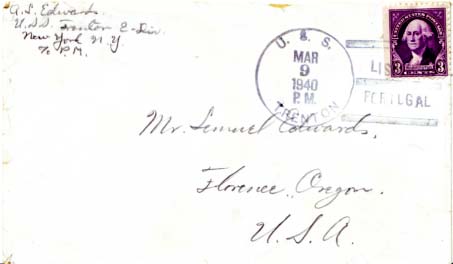 A. S. Edwards
U.S.S. Trenton E-Div.
New York N.Y.
℅ P.M.
U. S. S.
MAR
9
1940
P.M.
TRENTON
LIS
PORTUGAL
3 CENTS 3
Mr. Lemuel Edwards,
Florence, Oregon.
U.S.A.